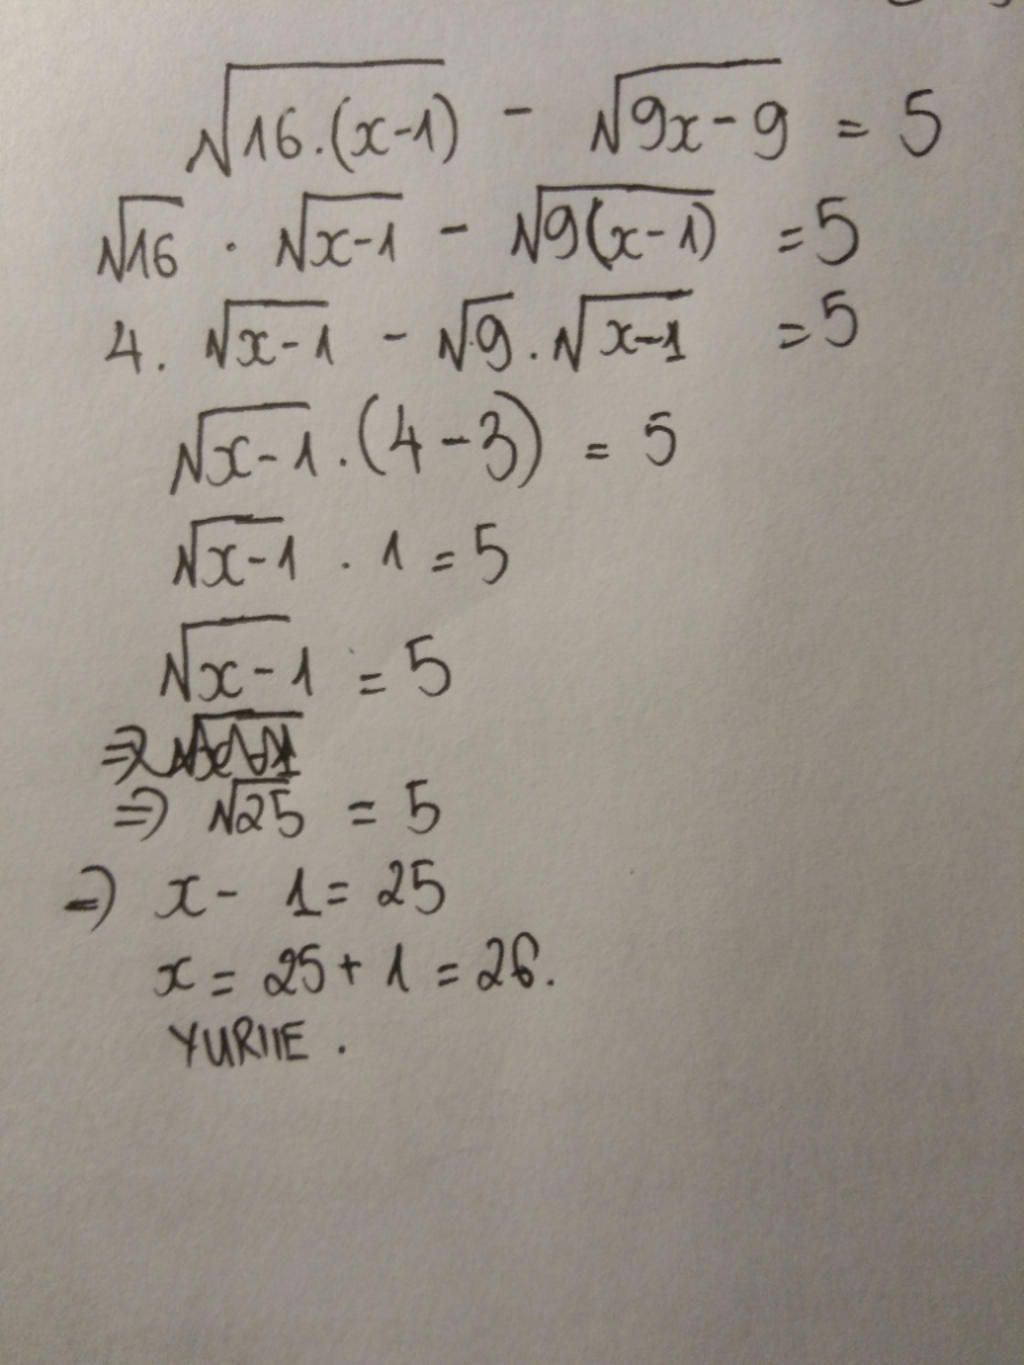 √16.(x-1) - √9x-9 = 5
√16 . √x-1 - √9(x-1) = 5
4. √x-1 - √9 . √x-1 = 5
√x-1 . (4-3) = 5
√x-1 . 1 = 5
√x-1 = 5
⇒ √25 = 5
⇒ x - 1 = 25
x = 25 + 1 = 26.
YURIIE .